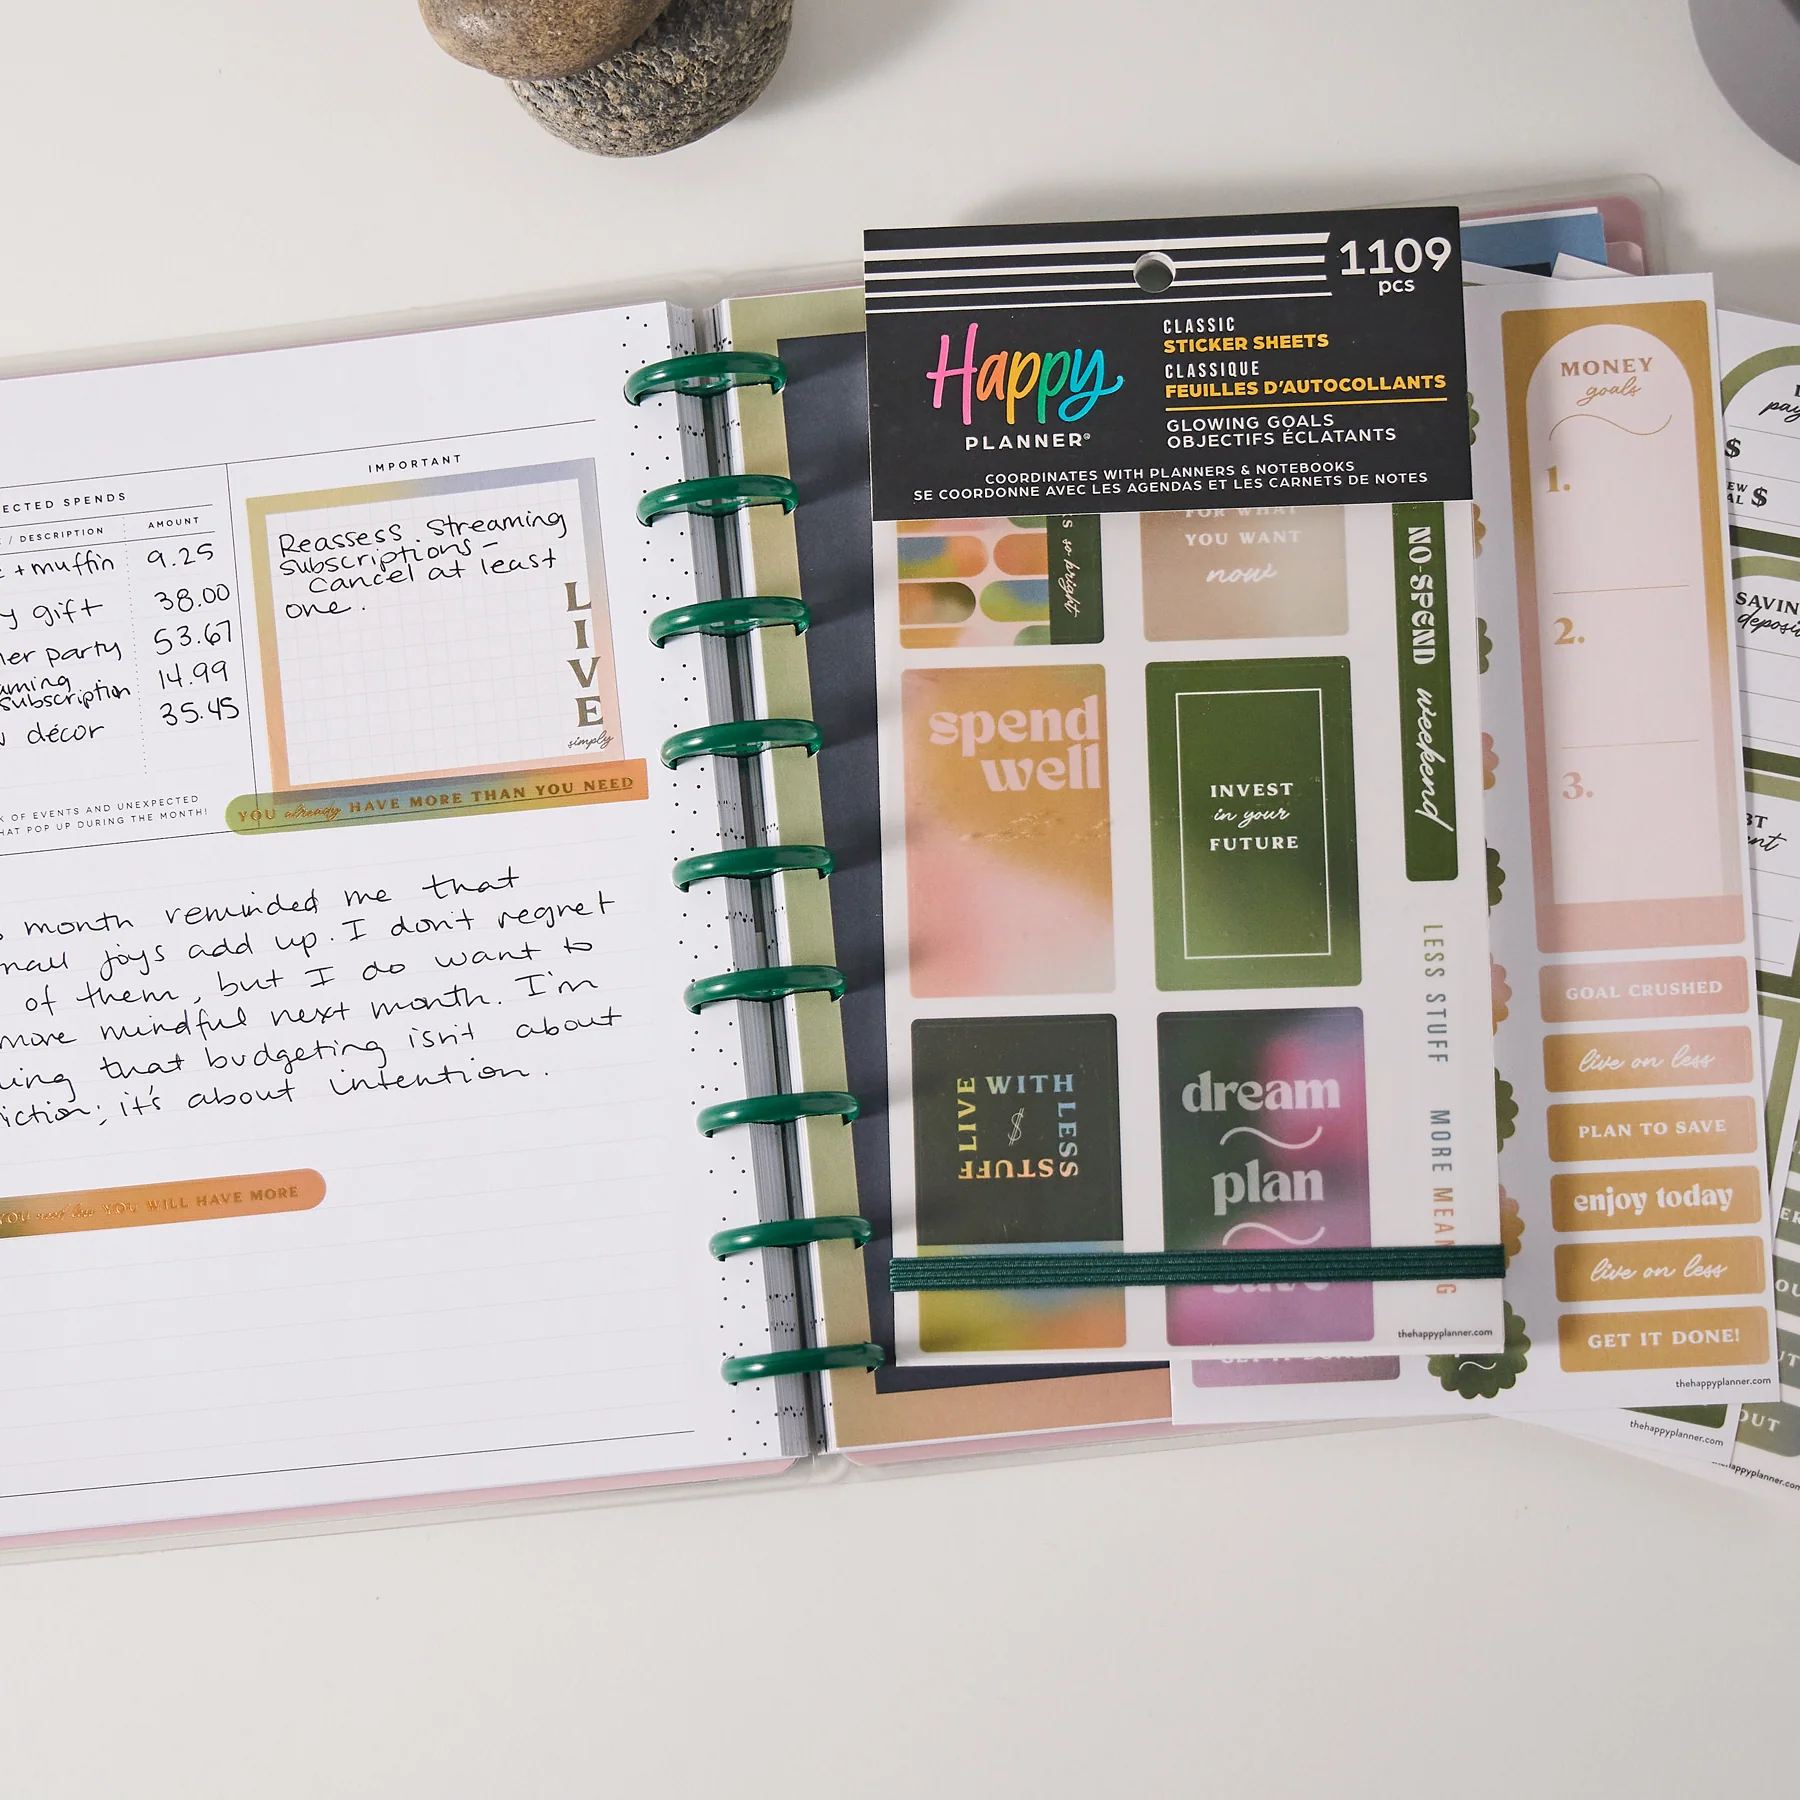 ECTED SPENDS
/ DESCRIPTION
AMOUNT
+ muffin 9.25
y gift 38.00
ner party 53.67
aming
subscription 14.99
décor 35.45
K OF EVENTS AND UNEXPECTED
HAT POP UP DURING THE MONTH!
IMPORTANT
Reassess streaming
subscriptions -
Cancel at least
one.
LIVE
simply
YOU already HAVE MORE THAN YOU NEED
month reminded me that
mall joys add up. I don't regret
of them, but I do want to
more mindful next month. I'm
ing that budgeting isn't about
iction; it's about intention.
YOU need less YOU WILL HAVE MORE
1109
pcs
Happy
PLANNER®
CLASSIC
STICKER SHEETS
CLASSIQUE
FEUILLES D'AUTOCOLLANTS
GLOWING GOALS
OBJECTIFS ÉCLATANTS
COORDINATES WITH PLANNERS & NOTEBOOKS
SE COORDONNE AVEC LES AGENDAS ET LES CARNETS DE NOTES
so bright
FOR WHAT
YOU WANT
now
NO-SPEND weekend
spend
well
INVEST
in your
FUTURE
LIVE WITH LESS STUFF
$
dream
plan
save
LESS STUFF MORE MEANING
thehappyplanner.com
GET IT DONE!
MONEY
goals
1.
2.
3.
GOAL CRUSHED
live on less
PLAN TO SAVE
enjoy today
live on less
GET IT DONE!
thehappyplanner.com
pay
$
EW
AL $
SAVIN
deposi
BT
ent
OUT
thehappyplanner.com
happyplanner.com